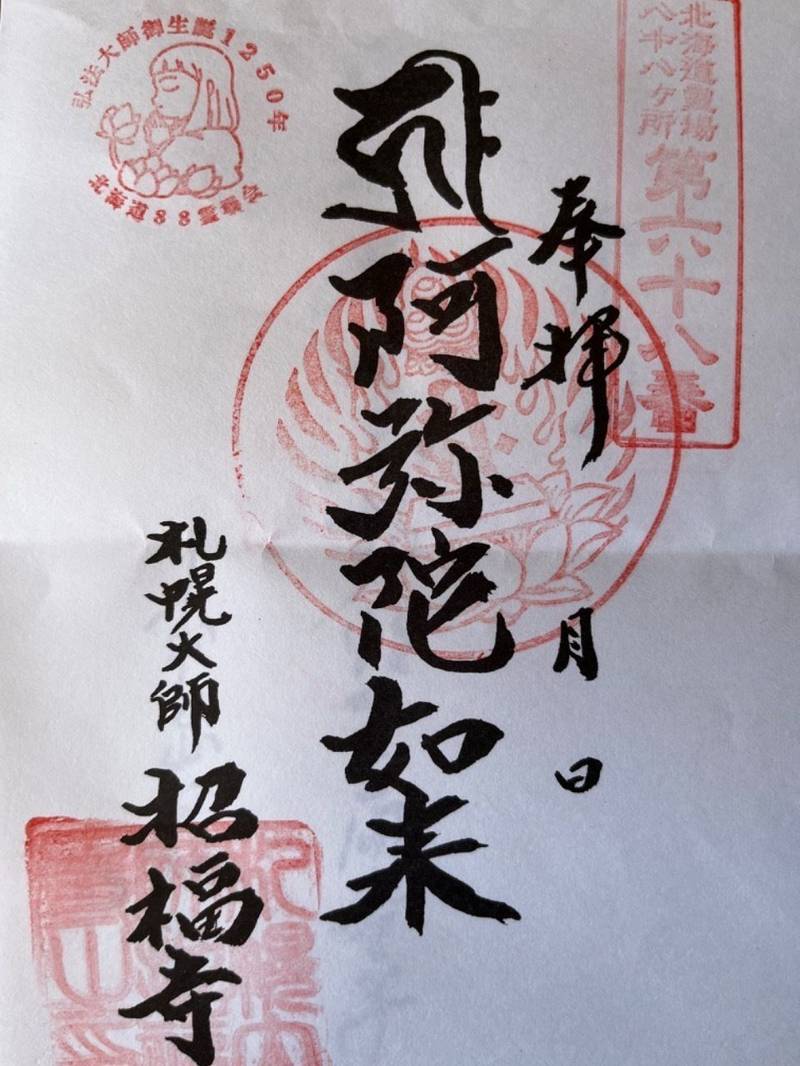 北海道霊場
八十八ヶ所
第六十八番
奉拝
月 日
阿弥陀如来
札幌大師 招福寺
弘法大師御生誕1250年
北海道88霊場会